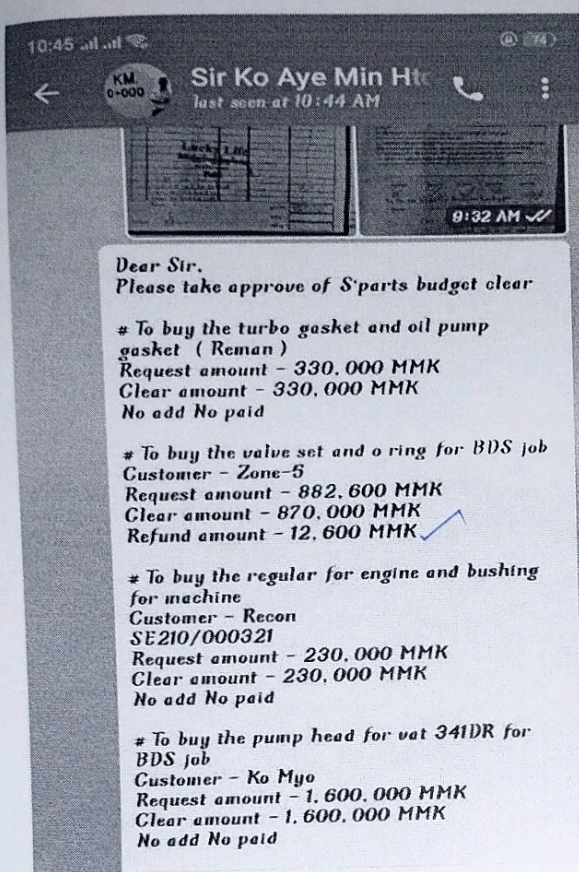 10:45
74
KM.
0+000
Sir Ko Aye Min Htc
last seen at 10:44 AM
Lucky Life
9:32 AM
Dear Sir.
Please take approve of S'parts budget clear
# To buy the turbo gasket and oil pump
gasket ( Reman )
Request amount - 330,000 MMK
Clear amount - 330,000 MMK
No add No paid
# To buy the valve set and o ring for BDS job
Customer - Zone-5
Request amount - 882,600 MMK
Clear amount - 870,000 MMK
Refund amount - 12,600 MMK
# To buy the regular for engine and bushing
for machine
Customer - Recon
SE210/000321
Request amount - 230,000 MMK
Clear amount - 230,000 MMK
No add No paid
# To buy the pump head for vat 341DR for
BDS job
Customer - Ko Myo
Request amount - 1,600,000 MMK
Clear amount - 1,600,000 MMK
No add No paid